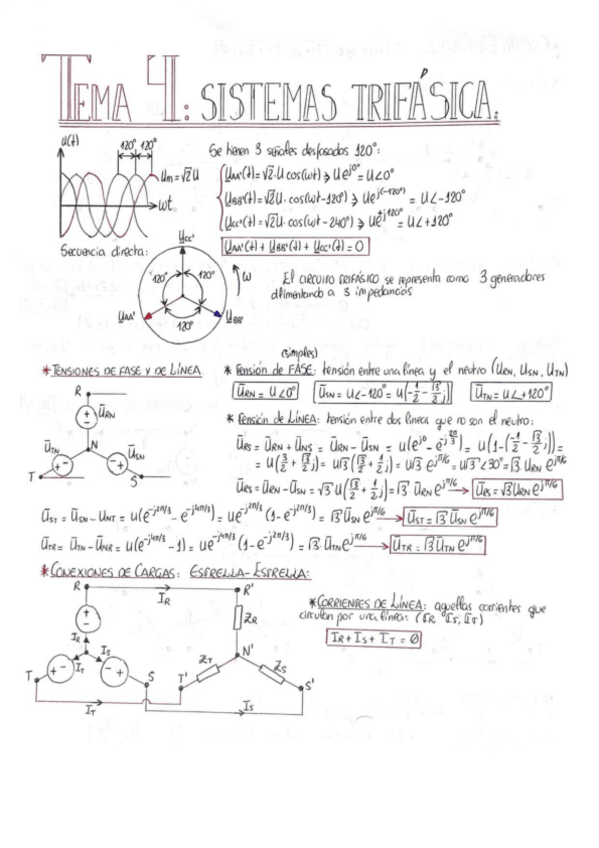 TEMA 4: SISTEMAS TRIFÁSICA.
u(t)
120° 120°
Um=√2U
ωt
Se tienen 3 señales desfasadas 120°:
UAA'(t)=√2·U cos(ωt) → Ue^j0° = U∠0°
UBB'(t)=√2U·cos(ωt-120°) → Ue^j(-120°) = U∠-120°
UCC'(t)=√2U·cos(ωt-240°) → Ue^+j120° = U∠+120°
UAA'(t)+UBB'(t)+UCC'(t)=0
Secuencia directa:
UCC'
120° 120°
ω
UAA' 120° UBB'
El CIRCUITO TRIFÁSICO se representa como 3 generadores
alimentando a 3 impedancias
(simples)
* TENSIONES DE FASE Y DE LÍNEA
* Tensión de FASE: tensión entre una línea y el neutro (URN, USN, UTN)
URN = U∠0°
USN = U∠-120° = U(-1/2 - √3/2 j)
UTN = U∠+120°
R
URN
UTN N USN
T S
* Tensión de LÍNEA: tensión entre dos líneas que no son el neutro:
URS = URN + UNS = URN - USN = U(e^j0 - e^-j2π/3) = U(1-(-1/2 - √3/2 j)) =
= U(3/2 + √3/2 j) = U√3(√3/2 + 1/2 j) = U√3 e^jπ/6 = U√3∠30° = √3 URN e^jπ/6
URS = URN - USN = √3 U(√3/2 + 1/2 j) = √3 URN e^jπ/6 → URS = √3 URN e^jπ/6
UST = USN - UNT = U(e^-j2π/3 - e^-j4π/3) = Ue^-j2π/3 (1-e^-j2π/3) = √3 USN e^jπ/6 → UST = √3 USN e^jπ/6
UTR = UTN - UNR = U(e^-j4π/3 - 1) = Ue^-j4π/3 (1-e^-j2π/3) = √3·UTN e^jπ/6 → UTR = √3 UTN e^jπ/6
* CONEXIONES DE CARGAS: ESTRELLA-ESTRELLA:
R IR R'
ZR
IR
IT IS
T S
N'
ZT ZS
T' S'
IT IS
* CORRIENTES DE LÍNEA: aquellas corrientes que
circulan por una línea: (IR, IS, IT)
IR + IS + IT = 0